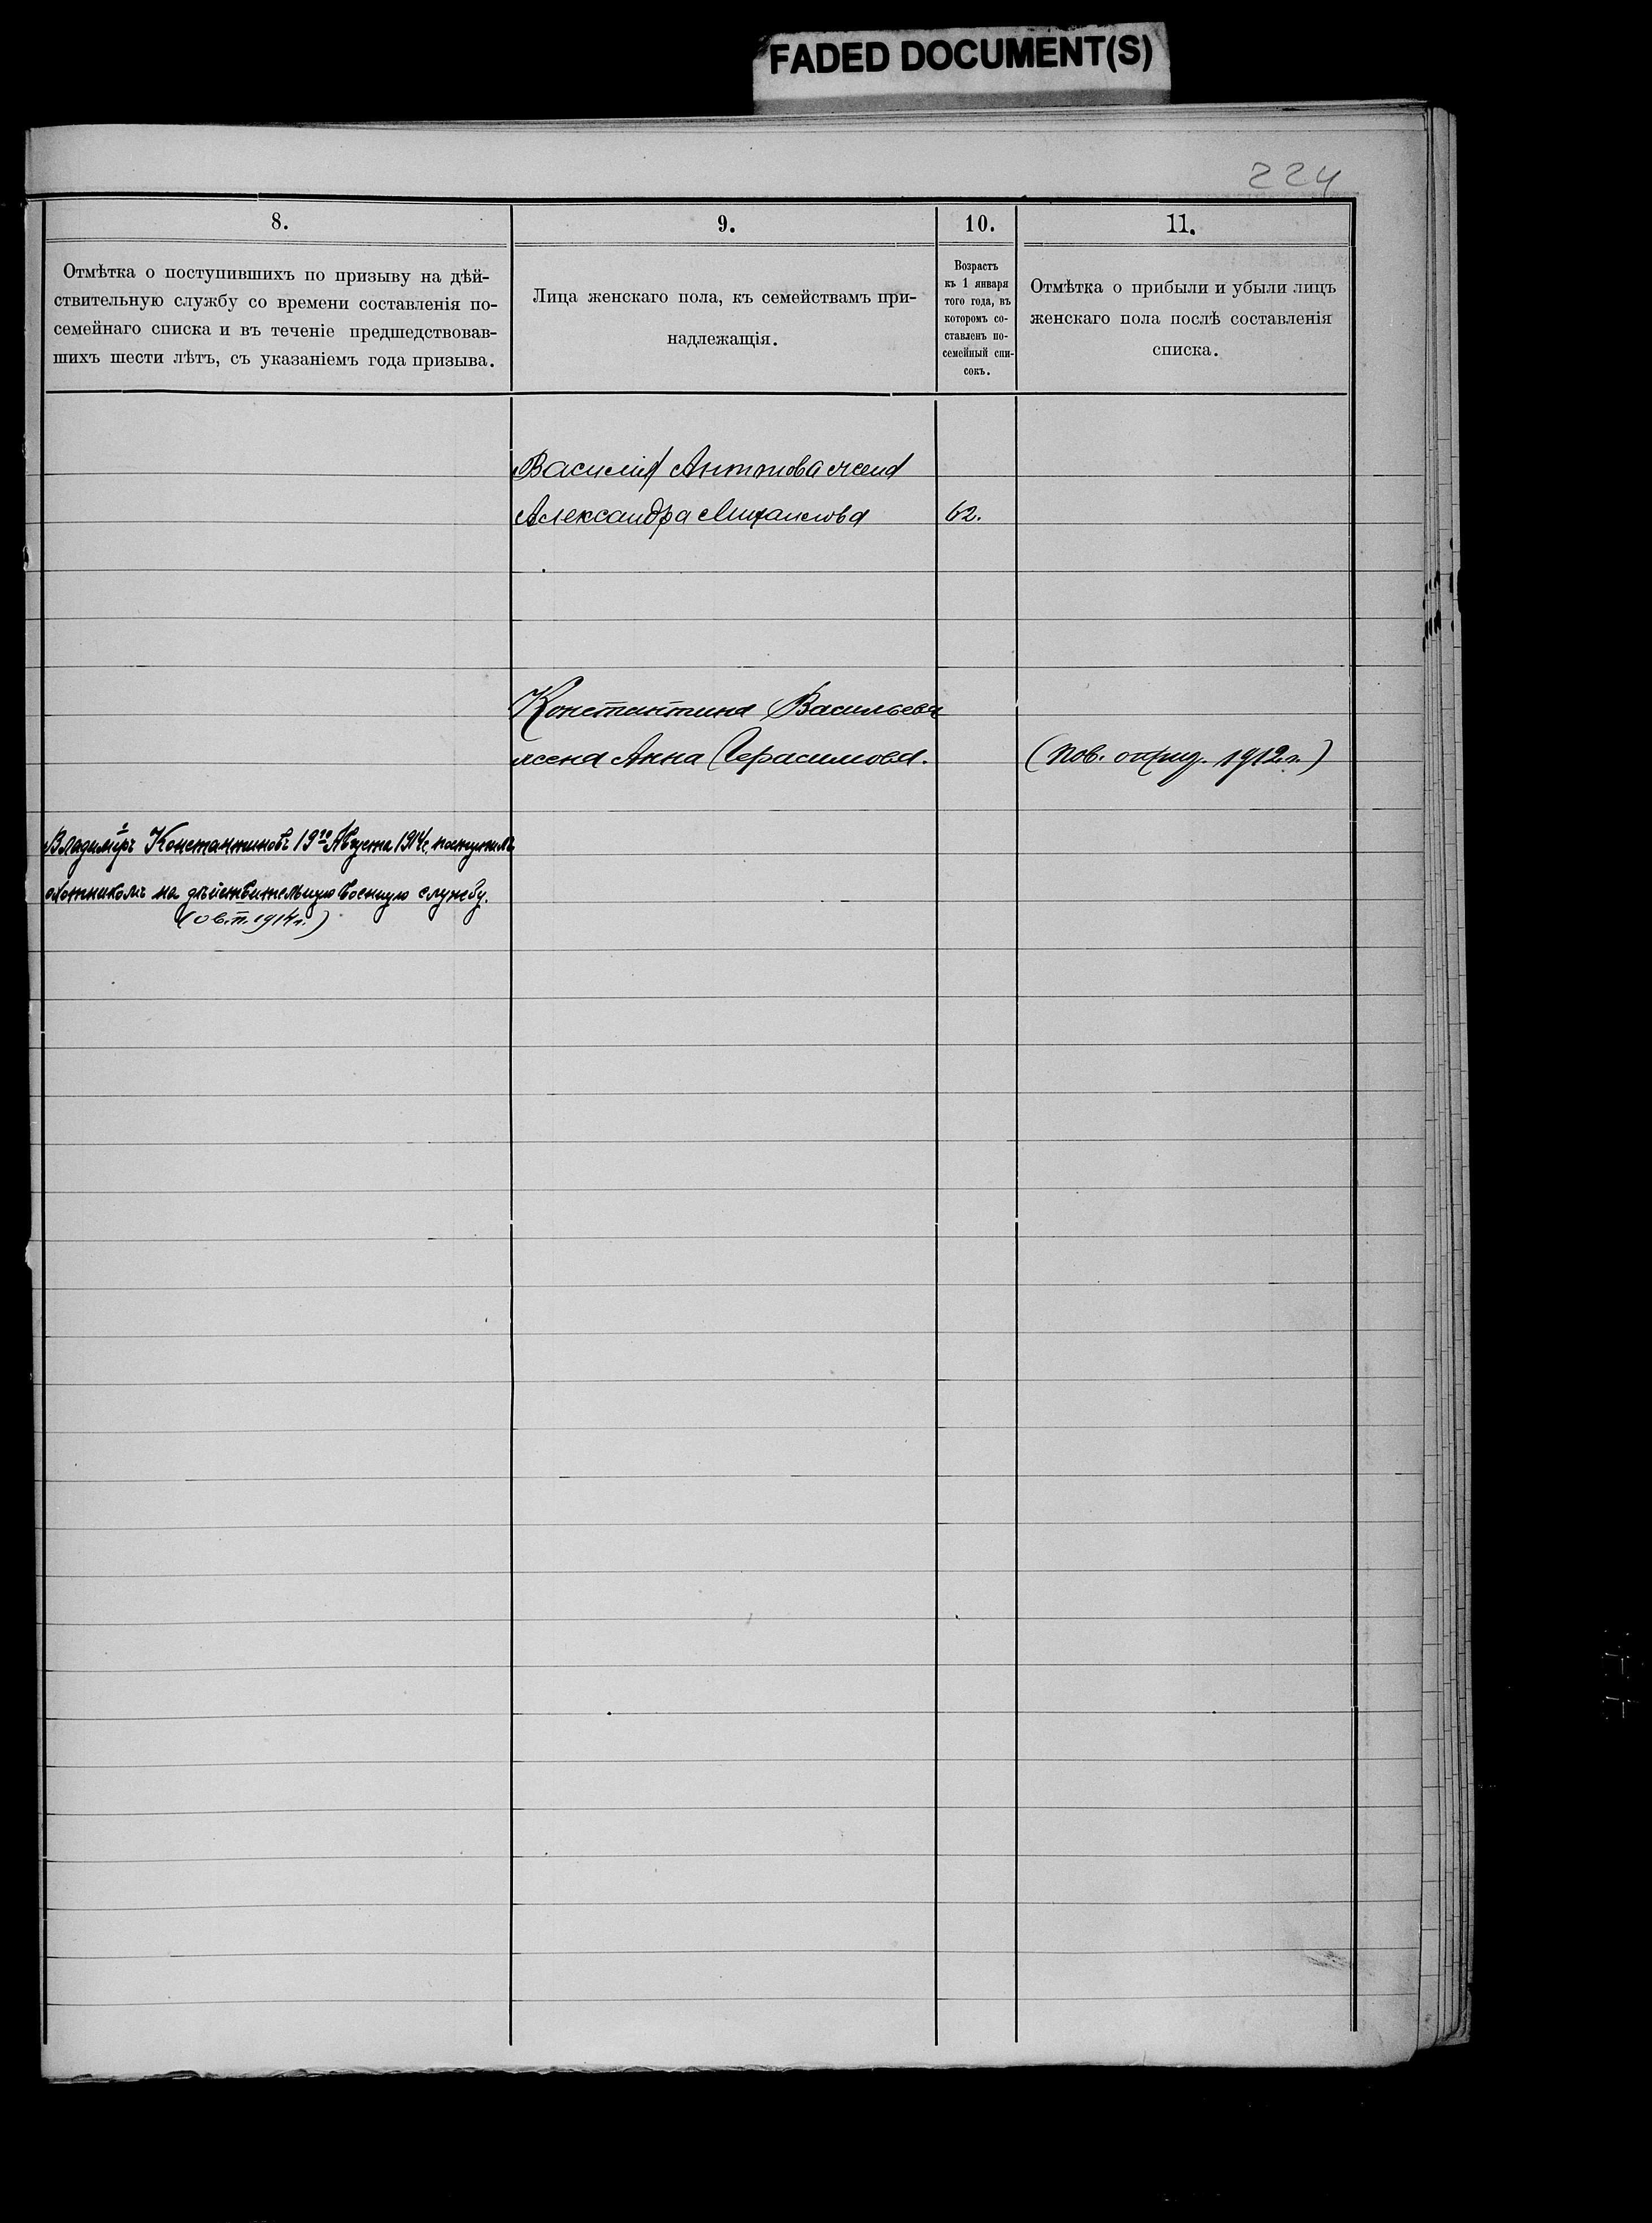 FADED DOCUMENT(S)
224
8.
9.
10.
11.
Отмѣтка о поступившихъ по призыву на дѣй-
ствительную службу со времени составленія по-
семейнаго списка и въ теченіе предшедствовав-
шихъ шести лѣтъ, съ указаніемъ года призыва.
Лица женскаго пола, къ семействамъ при-
надлежащія.
Возрастъ
къ 1 января
того года, въ
которомъ со-
ставленъ по-
семейный спи-
сокъ.
Отмѣтка о прибыли и убыли лицъ
женскаго пола послѣ составленія
списка.
Василія Антонова жена
Александра Михаилова 62.
Константина Васильева
жена Анна Герасимова. (пов. 1912 г.)
Владиміръ Константиновъ 19го Августа 1914 г. поступилъ
охотникомъ на дѣйствительную военную службу.
1914 г.)